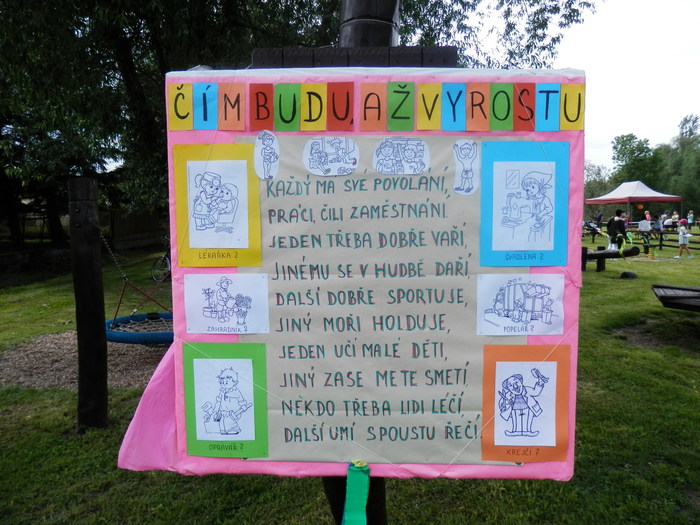 ČÍM BUDU, AŽ VYROSTU
KAŽDÝ MA SVÉ POVOLÁNÍ,
PRÁCI, ČILI ZAMĚSTNÁNÍ.
JEDEN TŘEBA DOBŘE VAŘÍ,
JINÉMU SE V HUDBĚ DAŘÍ,
DALŠÍ DOBŘE SPORTUJE,
JINÝ MOŘI HOLDUJE,
JEDEN UČÍ MALÉ DĚTI,
JINÝ ZASE METE SMETÍ,
NĚKDO TŘEBA LIDI LÉČÍ,
DALŠÍ UMÍ SPOUSTU ŘEČÍ.
LÉKAŘKA?
ZAHRADNÍK?
OPRAVÁŘ?
ŠVADLENA?
POPELÁŘ?
KREJČÍ?